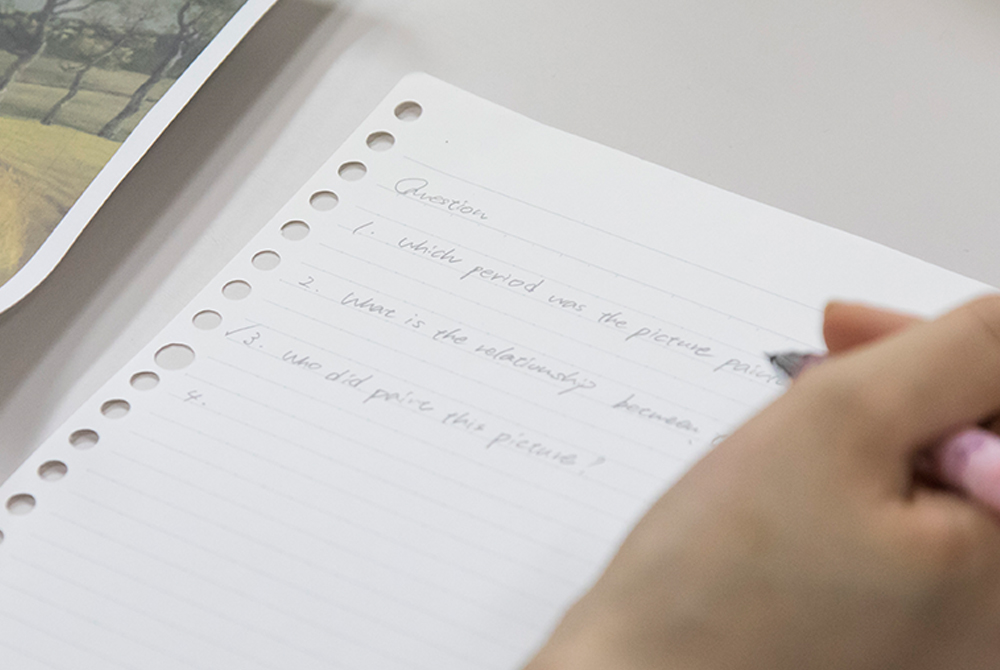 Question
1. which period was the picture paint
2. What is the relationship between
√3. Who did paint this picture?
4.